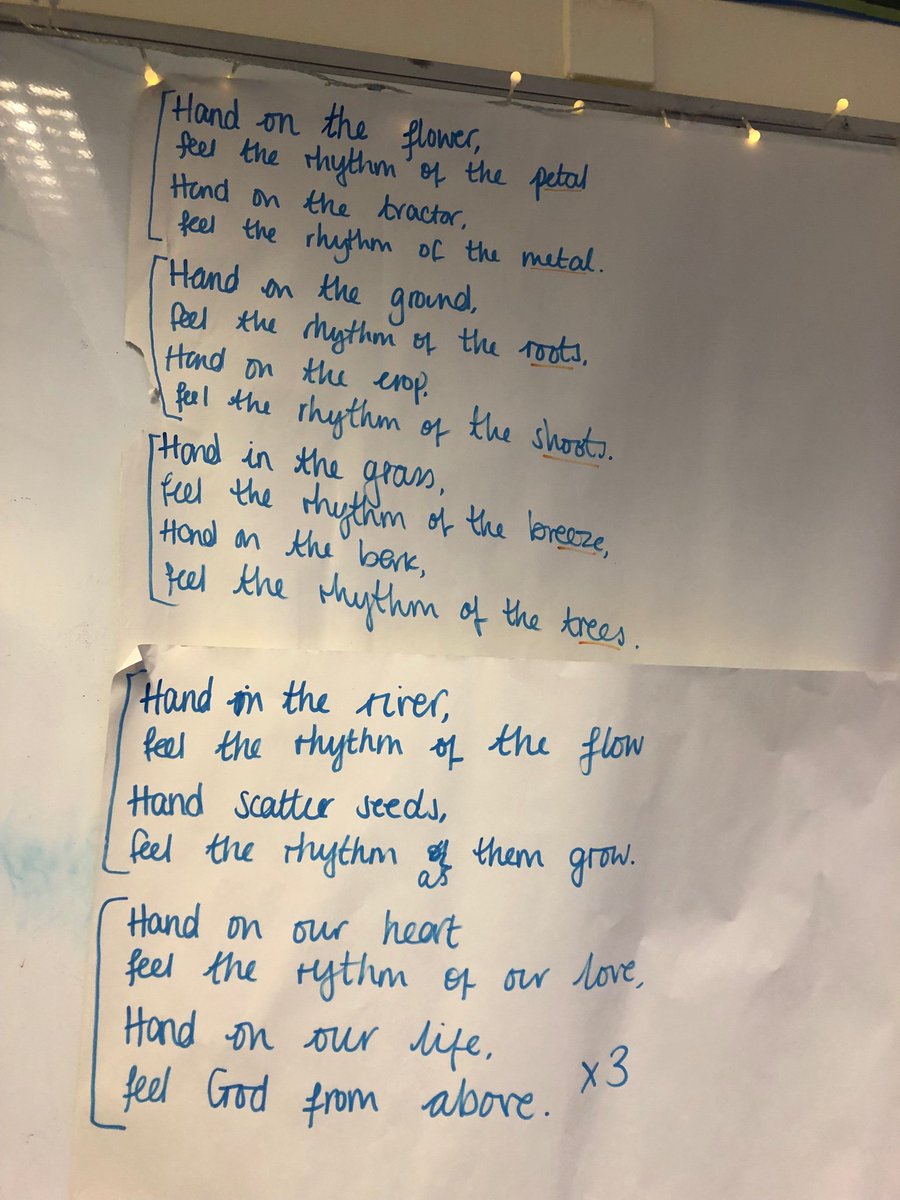 Hand on the flower,
feel the rhythm of the petal
Hand on the tractor,
feel the rhythm of the metal.
Hand on the ground,
feel the rhythm of the roots.
Hand on the crop.
feel the rhythm of the shoots.
Hand in the grass,
feel the rhythm of the breeze,
Hand on the bark,
feel the rhythm of the trees.
Hand in the river,
feel the rhythm of the flow
Hand scatter seeds,
feel the rhythm of them grow.
as
Hand on our heart
feel the rythm of our love,
Hand on our life,
feel God from above. x3